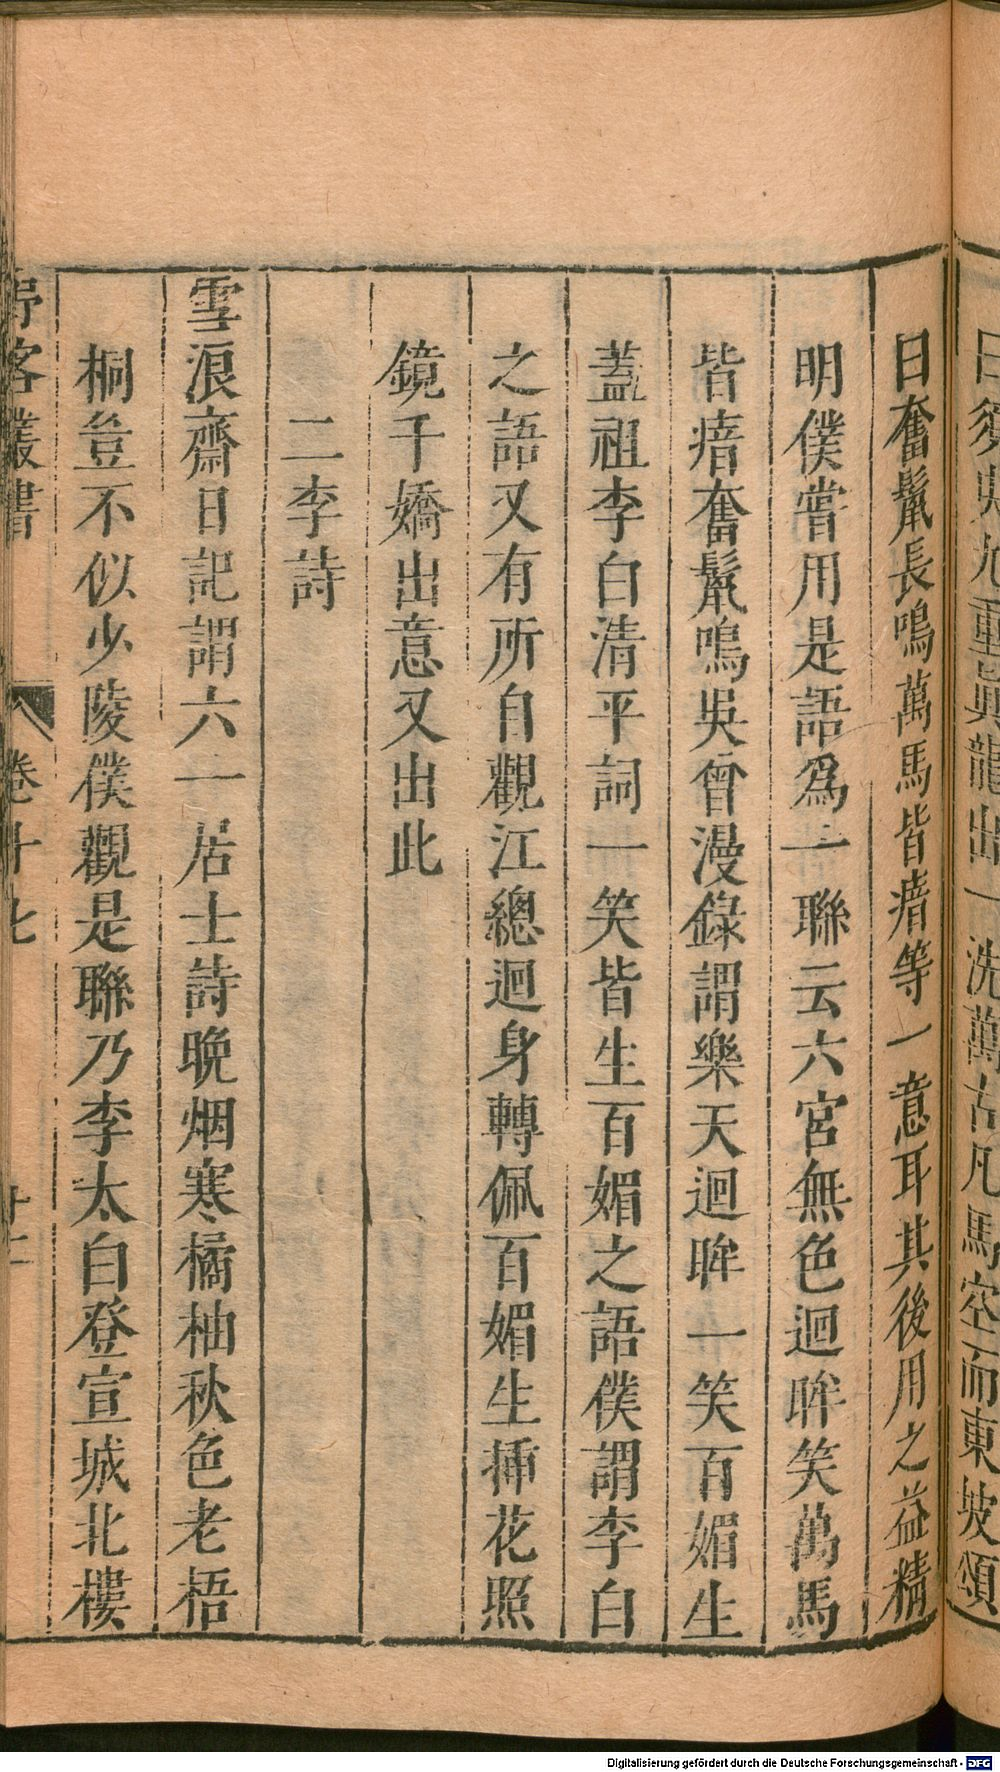 曰須臾九重眞龍出一洗萬古凡馬空而東坡頌
曰奮鬛長鳴萬馬皆瘖等一意耳其後用之益精
明僕嘗用是語爲一聯云六宮無色迴眸笑萬馬
皆瘖奮鬛鳴吳曾漫錄謂樂天迴眸一笑百媚生
蓋祖李白清平詞一笑皆生百媚之語僕謂李白
之語又有所自觀江總迴身轉佩百媚生揷花照
鏡千嬌出意又出此
二李詩
雪浪齋日記謂六一居士詩晚烟寒橘柚秋色老梧
桐豈不似少陵僕觀是聯乃李太白登宣城北樓
客叢書 卷十七
Digitalisierung gefördert durch die Deutsche Forschungsgemeinschaft - DFG